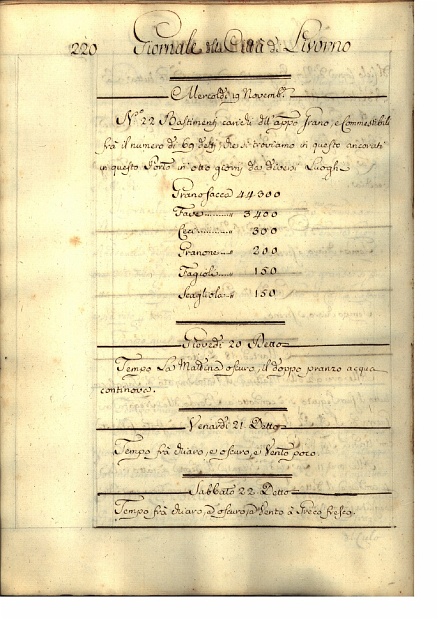 220 Giornale Città di Livorno
Mercoldì 19 Novemb.
N.º 22 Bastimenti carichi dell'appo Grano, e Commestibili
frà il numero di 69 detti, che si troviamo in questo ancorati
in questo Porto in otto giorni da diversi Luoghi
Grano sacca 44300
Fave 3400
Ceci 300
Granone 200
Fagiola 150
Scagliola 150
Giovedì 20 Detto
Tempo La Mattina oscuro, il doppo pranzo acqua
continova.
Venardì 21 Detto
Tempo frà chiaro, e oscuro, e Vento poco
Sabbato 22 Detto
Tempo frà chiaro, e oscuro, Vento à Greco fresco.